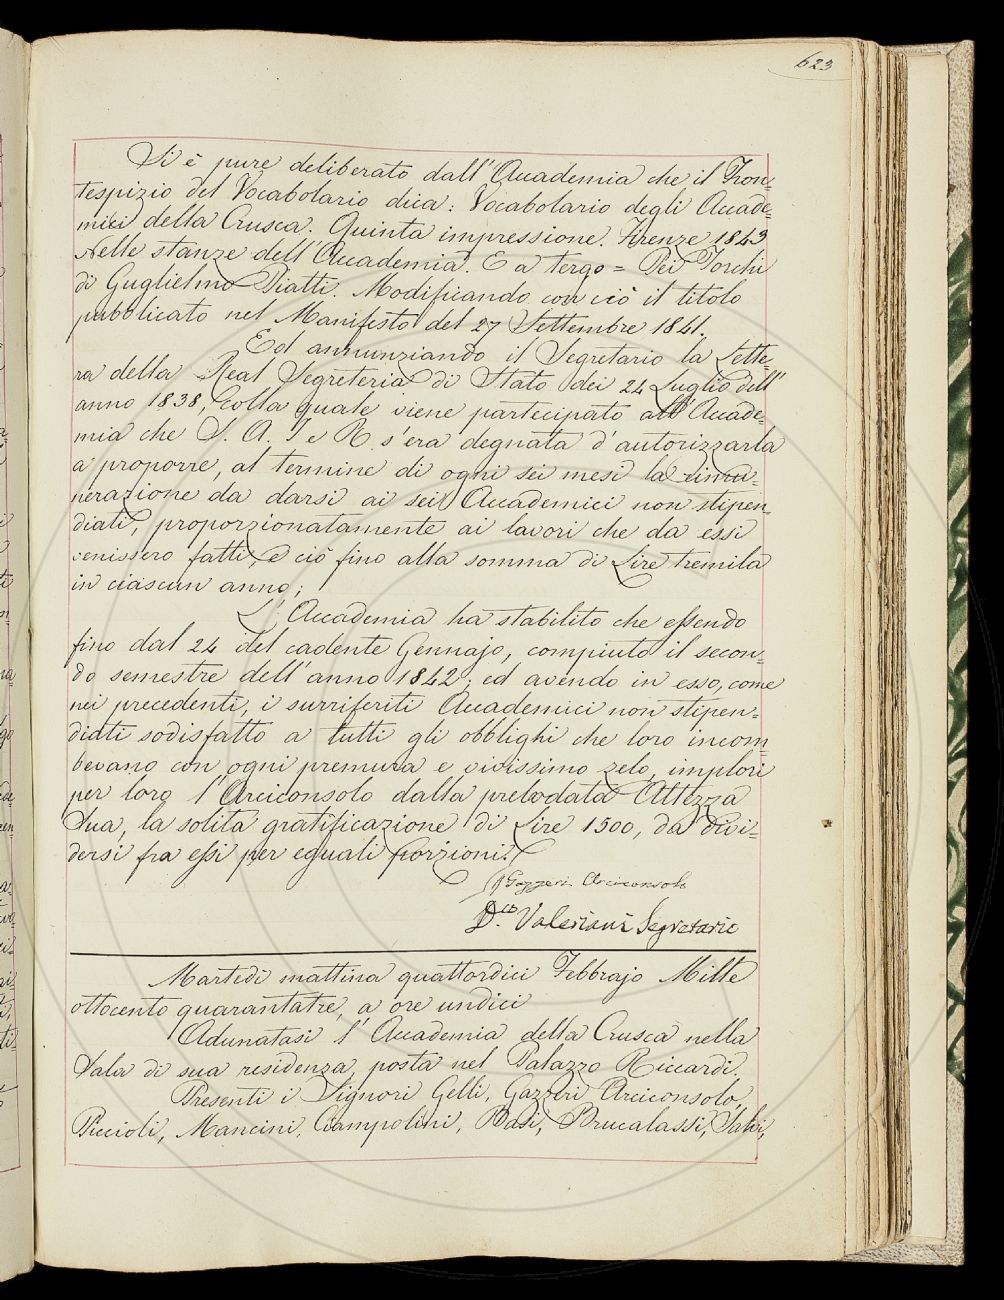 623
Si è pure deliberato dall'Accademia che il Fron-
tespizio del Vocabolario dica: Vocabolario degli Accade-
mici della Crusca. Quinta impressione. Firenze 1843
Nelle stanze dell'Accademia. E a tergo = Pei Torchi
di Guglielmo Piatti. Modificando con ciò il titolo
pubblicato nel Manifesto del 27 Settembre 1841.
Ed annunziando il Segretario la Lette-
ra della Real Segreteria di Stato dei 24 Luglio dell'
anno 1838, colla quale viene partecipato all'Accade-
mia che S. A. I e R. s'era degnata d'autorizzarla
a proporre, al termine di ogni sei mesi la rimu-
nerazione da darsi ai sei Accademici non stipen-
diati, proporzionatamente ai lavori che da essi
venissero fatti, e ciò fino alla somma di Lire tremila
in ciascun anno;
L'Accademia ha stabilito che essendo
fino dal 24 del cadente Gennajo, compiuto il secon-
do semestre dell'anno 1842; ed avendo in esso, come
nei precedenti, i surriferiti Accademici non stipen-
diati sodisfatto a tutti gli obblighi che loro incom-
bevano con ogni premura e vivissimo zelo, implori
per loro l'Arciconsolo dalla prelodata Altezza
Sua, la solita gratificazione di Lire 1500, da divi-
dersi fra essi per eguali porzioni.
Gazzeri Arciconsolo
D. Valeriani Segretario
Martedì mattina quattordici Febbrajo Mille
ottocento quarantatre, a ore undici
Adunatasi l'Accademia della Crusca nella
Sala di sua residenza, posta nel Palazzo Riccardi.
Presenti i Signori Gelli, Gazzeri Arciconsolo,
Piccioli, Mancini, Ciampolini, Basi, Brucalassi, Salvi,